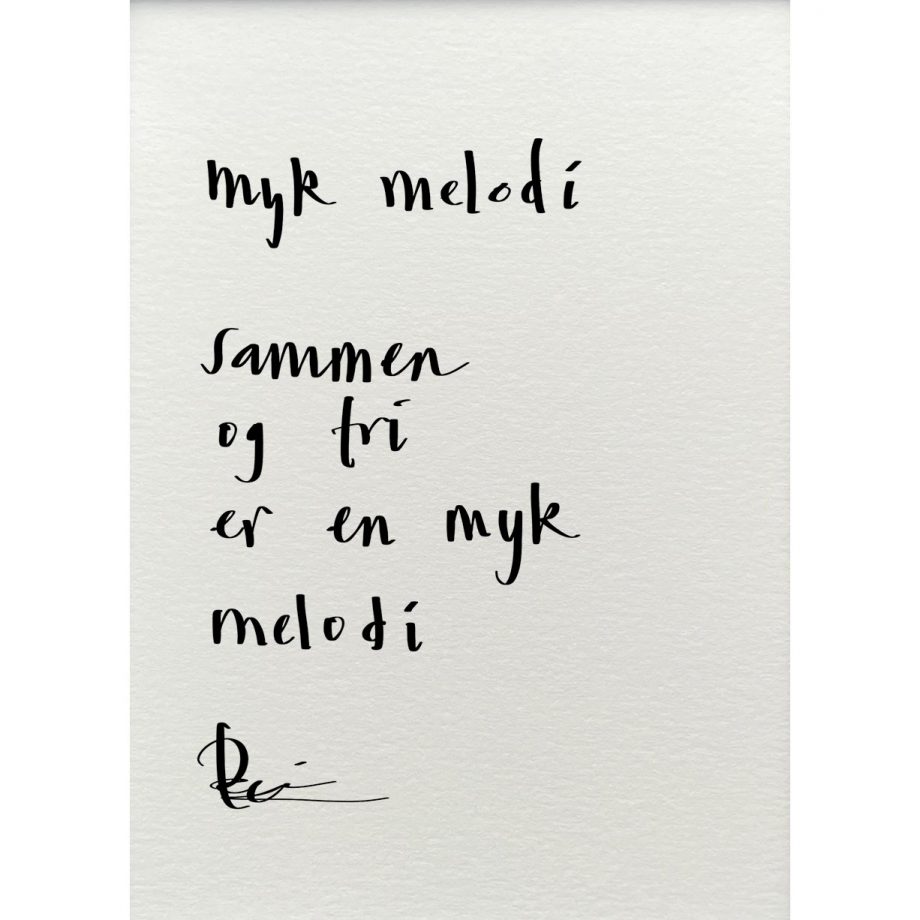 myk melodi
sammen
og fri
er en myk
melodi